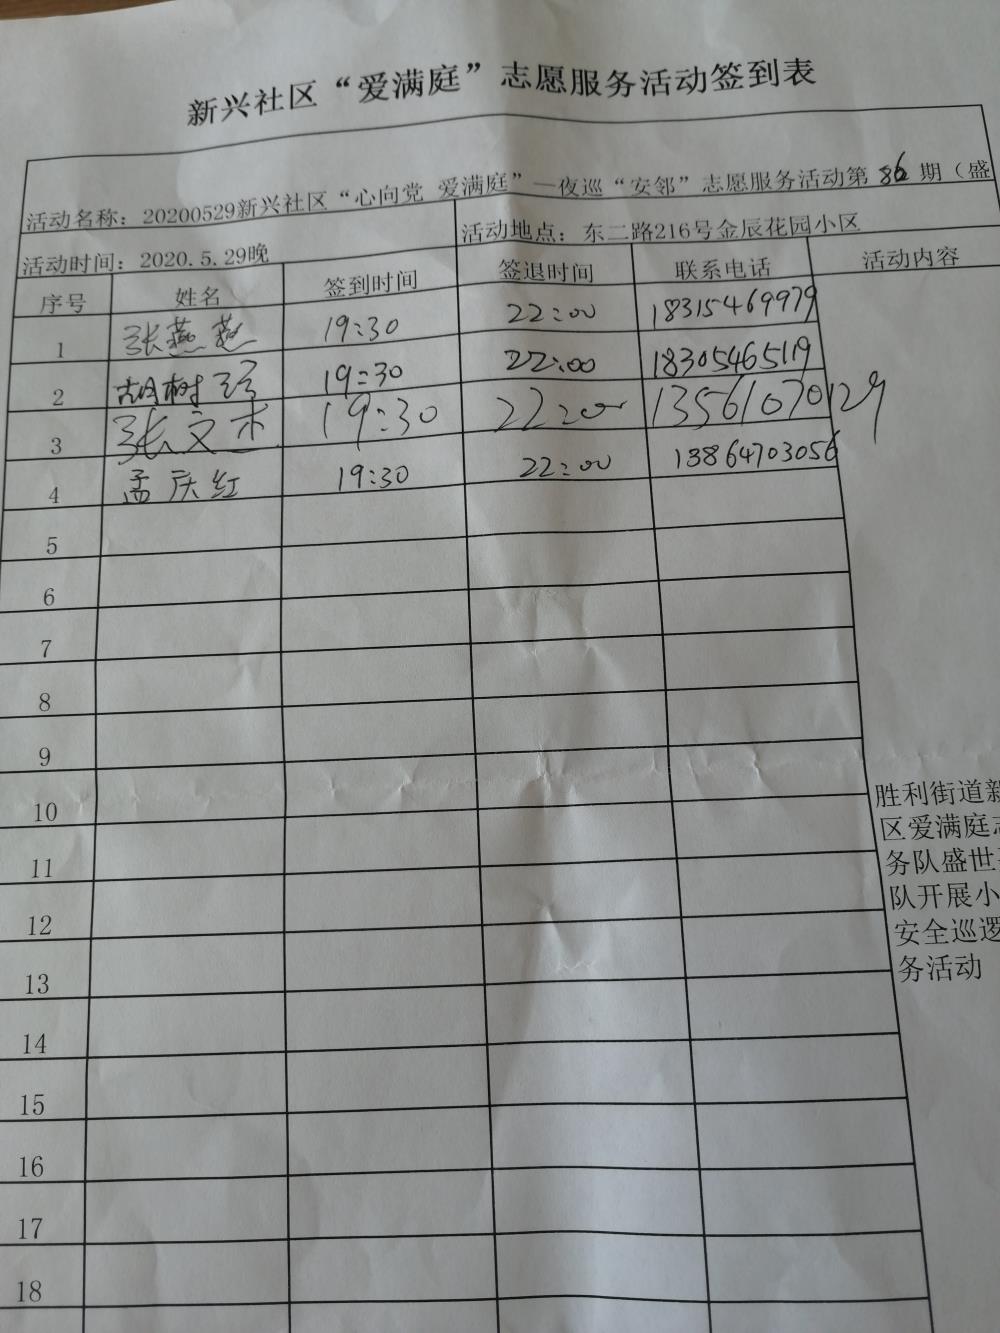 新兴社区“爱满庭”志愿服务活动签到表
活动名称：20200529新兴社区“心向党 爱满庭”—夜巡“安邻”志愿服务活动第86期（盛
活动时间：2020.5.29晚 活动地点：东二路216号金辰花园小区
序号 姓名 签到时间 签退时间 联系电话 活动内容
1 张燕燕 19:30 22:00 18315469979
2 胡树 19:30 22:00 18305465119
3 张文 19:30 22:00 13561070129
4 孟庆红 19:30 22:00 13864703056
5
6
7
8
9
10
11
12
13
14
15
16
17
18
胜利街道新
区爱满庭志
务队盛世
队开展小
安全巡逻
务活动